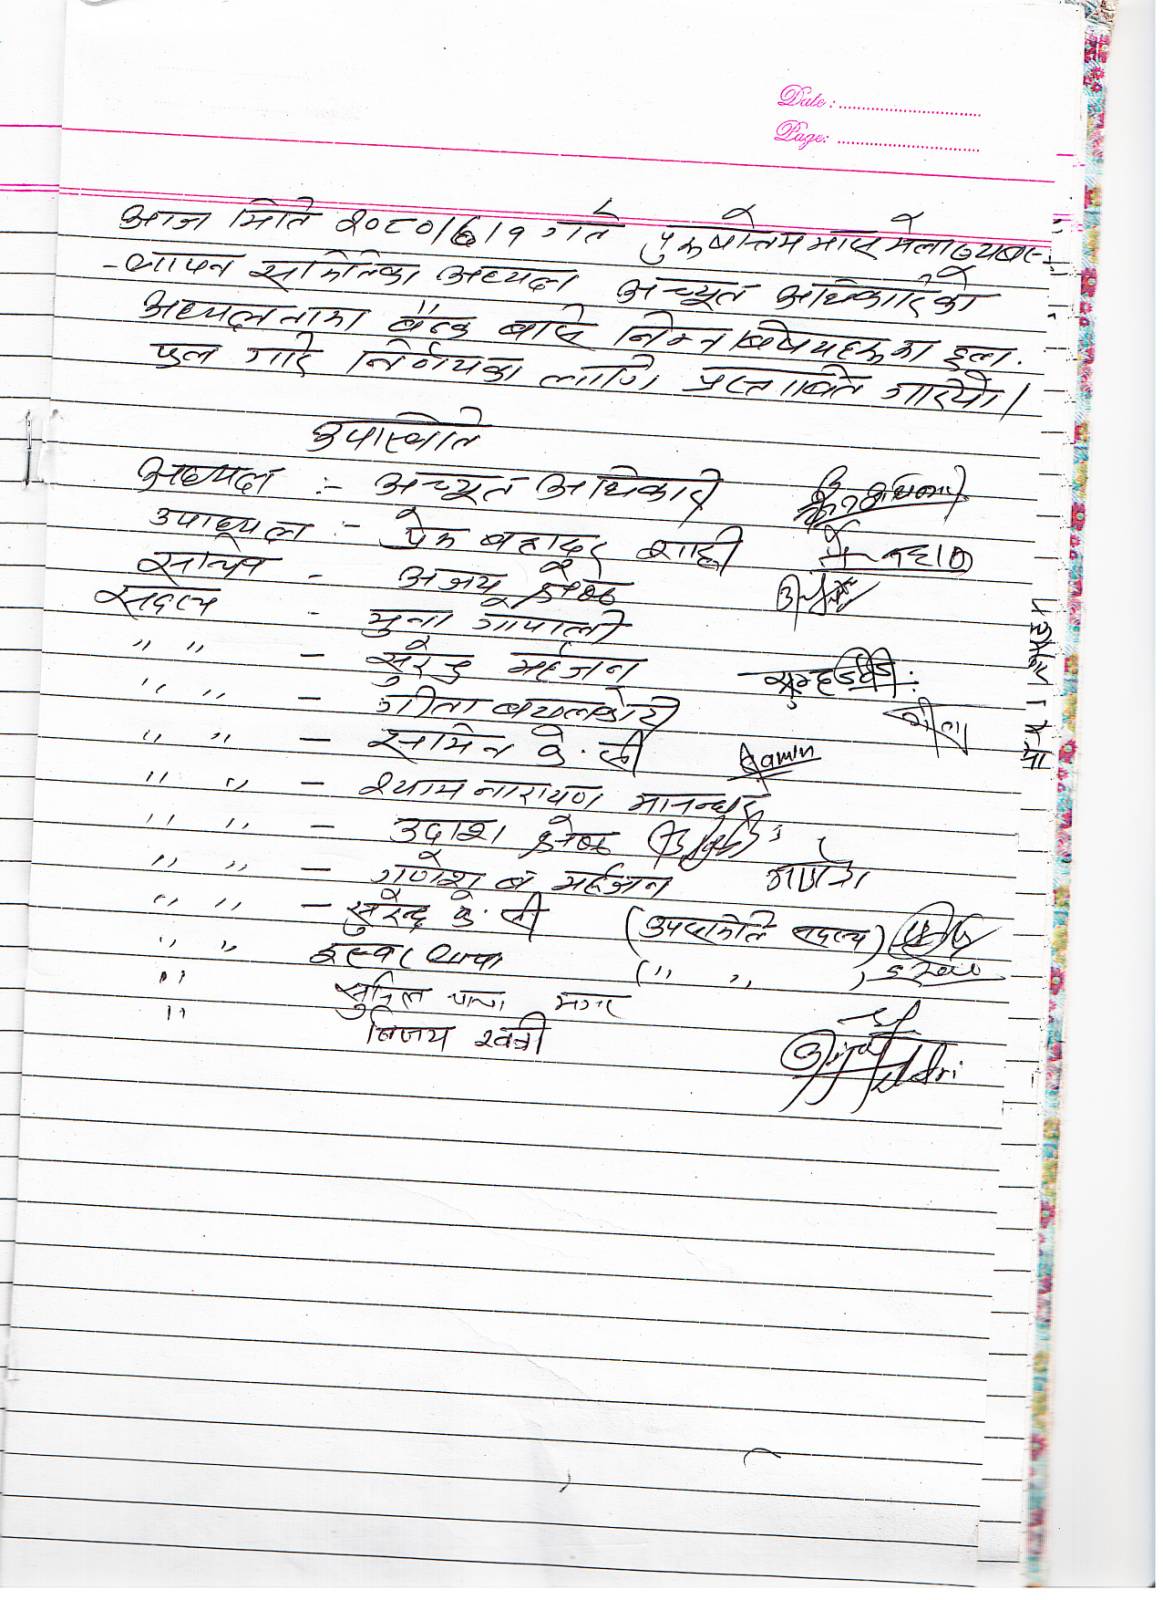 Date : ..............................
Page: ..............................
आज मिति २०८०/६/१ गते पुरूषोत्तम मास मेला व्यबस-
-थापन समितिका अध्यक्ष अच्यूत अधिकारीको
अध्यक्षतामा बैठक बसि निम्न बिषयहरूमा छल-
फल गरि निर्णयका लागि प्रस्तावित गरियो।
उपास्थिति
अध्यक्ष :- अच्यूत अधिकारी
उपाध्यक्ष :- प्रेम बहादुर शाही
सचिव - अजय श्रेष्ठ
सदस्य - मुना गोपाली
" " - सुरेन्द्र महर्जन
" " - गीता
" " - सामिन के.सी Samin
" " - श्याम नारायण मानन्धर
" " - उदाश श्रेष्ठ
" " - गणेश ब महर्जन गणेश
" " - सुरेन्द्र के.सी (उपसमिति सदस्य)
" " इस्वर थापा (" " )
" सुनिल थापा मगर
" बिजय खत्री